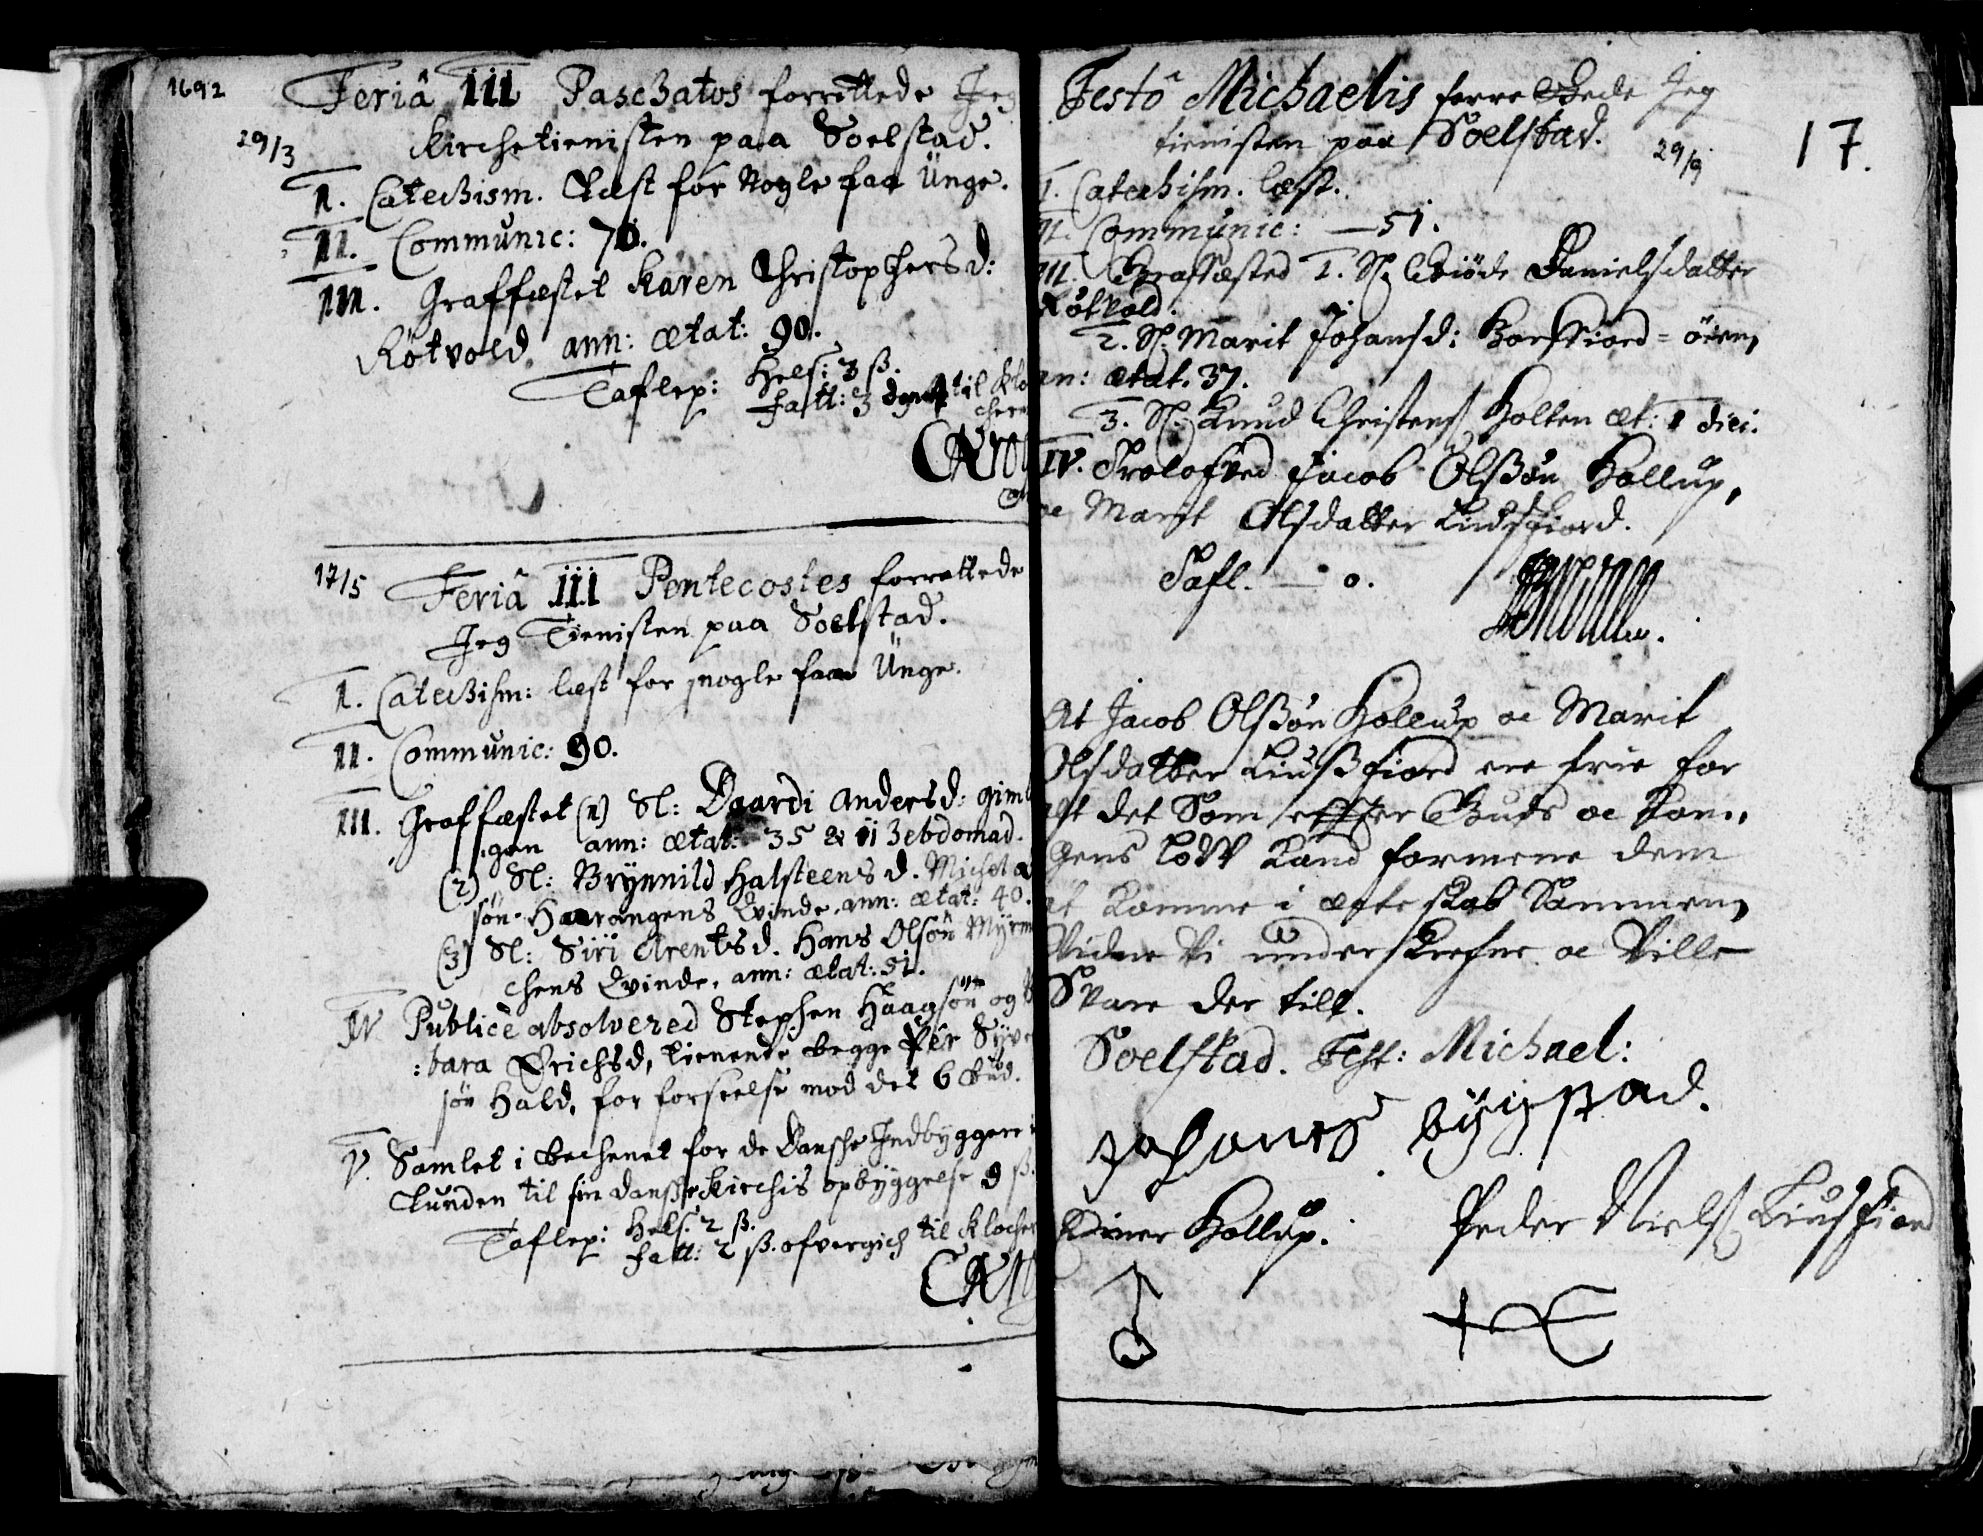 1692
Feriâ III Paschatos forrettede Jeg
29/3
Kirchetienisten paa Soelstad.
I. Catechism. Læst for Nogle faa Ünge.
II. Communic: 70.
III. Graffæstet Karen Christophersd:
Rötvold, ann: ætat: 90.
Taflep: Hels: 3 ß.
fatt: 3 til Klo
17/5
Feriâ III Pentecostes forrettede
Jeg Tienisten paa Soelstad.
I. Catechism: læst for nogle faa Ünge.
II. Communic: 90.
III. Graffæstet (1) Sl: Baardi Andersd: giml
gen ann: ætat: 35 & 11 hebdomad.
(2) Sl: Brynnild Halsteensd. Michel
søn Haarangens Qvinde, ann: ætat: 40.
(3) Sl: Siri Arentsd. Hans Olsøn Myrm
chens Qvinde, ann: ætat: 51.
IV. Publicè absolvered Stephen Haagsøn og
:bara Erichsd, tienende begge Per Syve
søn Hald, for forseelse mod det 6 bud.
V. Samlet i bechenet for de Danske Indbyggere
Lunden til sin danske Kirchis opbyggelse 9 ß.
Taflep: Hels: 2 ß.
fatt: 2 ß. ofvergich til Klocher
Festô Michaelis forrettede Jeg
17.
tienisten paa Soelstad.
29/9
I. Catechism. læst.
II. Communic: — 51.
III. Graffæsted 1. Sl. Daniels datter
Rötvold.
2. Sl. Marit Johansd: Horsfiord = ören,
an: ætat. 37.
3. Sl. Knud Christens. Holten æt: 1 diei.
IV. Trolofved Jacob Olßøn Hollup,
oc Marit Olsdatter Liusfiord.
Tafl. — 0.
At Jacob Olßøn Hollup oc Marit
Olsdatter Liusßfiord ere frie for
alt det Som effter Guds oc Kon,
gens Low Kand formene dem
at komme i ægteskab Sammen,
Vidne Vi underskrefne oc Ville
Svare der till.
Soelstad. Fest: Michael:
Johanes bÿgstad.
Einer Hollup.
Peder Niels. Liusfiord